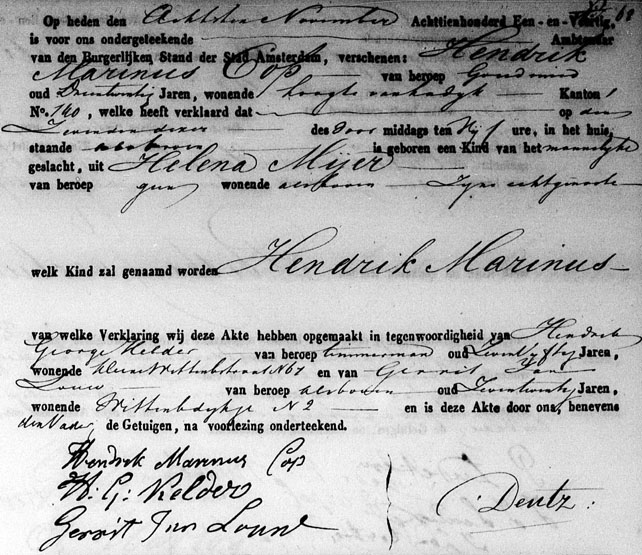 Op heden den Achtsten November Achttienhonderd Een-en-Veertig,
is voor ons ondergeteekende Ambtenaar
van den Burgerlijken Stand der Stad Amsterdam, verschenen: Hendrik
Marinus Cop van beroep
oud Jaren, wonende hoogte Kanton 1
No. 140, welke heeft verklaard dat op den
Zevenden dezer des voor middags ten Vijf ure, in het huis,
staande alsboven is geboren een Kind van het mannelijke
geslacht, uit Helena Mijer
van beroep geen wonende alsboven Zijne echtgenoote
welk Kind zal genaamd worden Hendrik Marinus
van welke Verklaring wij deze Akte hebben opgemaakt in tegenwoordigheid van Hendrik
George Kelder van beroep timmerman oud Jaren,
wonende kleine Wittenbstraat N 61 en van Gerrit Jan
Louw van beroep alsboven oud Jaren,
wonende N 2 en is deze Akte door ons, benevens
den Vader, de Getuigen, na voorlezing onderteekend.
Hendrik Marinus Cop
H: G: Kelder
Gerrit Jan Louw
Deutz